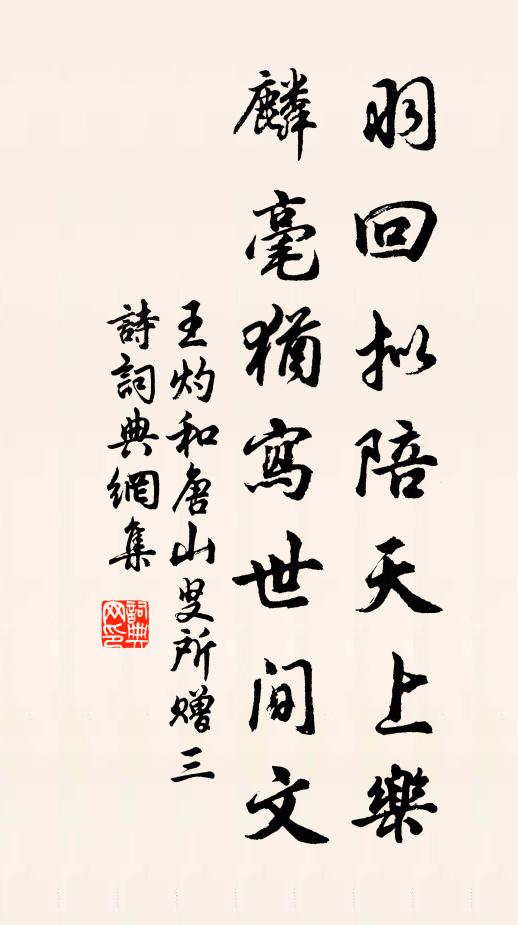 羽回拟陪天上樂
麟毫猶寫世间文
王灼和唐山叟所赠三
詩詞典網集
詞典網印